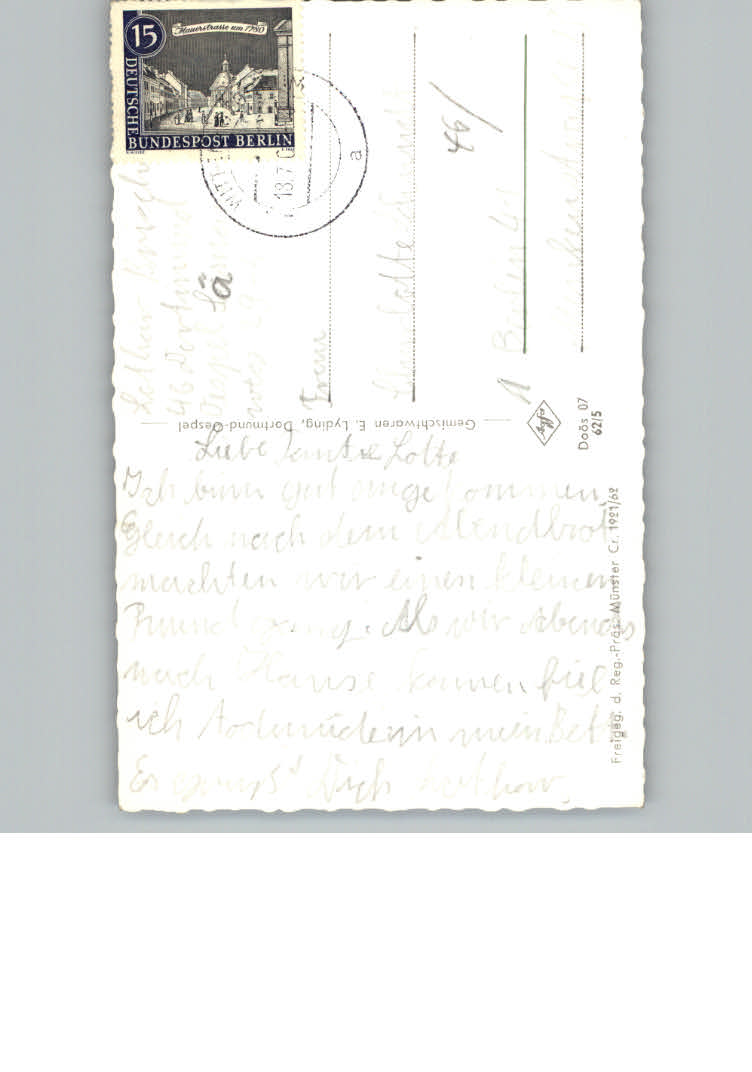 15
Mauerstrasse um 1780
DEUTSCHE
BUNDESPOST BERLIN
a
18.7.6
Lothar
46 Dortmund
Oespel
ä
46/
Frau
Lotte
1 Berlin
Gemischtwaren E. Lyding, Dortmund-Oespel
Agfa
Doös 07
62/5
Freigeg. d. Reg.-Präs. Münster Cr. 1921/62
Liebe Tante Lotte
Ich binn gut angekommen.
Gleich nach dem Abendbrot
machten wir einen kleinen
Rundgang. Als wir Abends
nach Hause kamen fiel
ich todmüde in mein Bett
Es grüßt Dich Lothar.